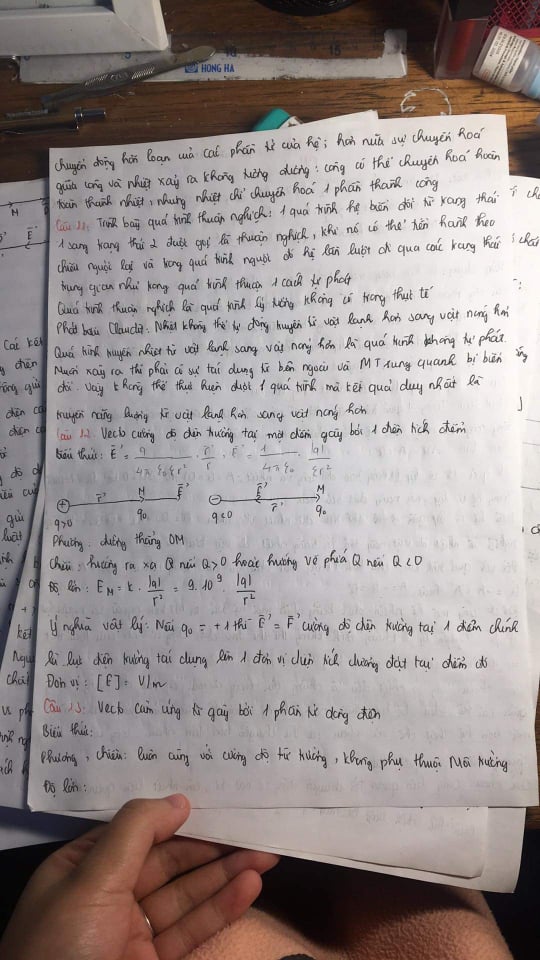 15
HONG HA
chuyển động hỗn loạn của các phần tử của hệ; hơn nữa sự chuyển hoá
giữa công và nhiệt xảy ra không tương đương: công có thể chuyển hoá hoàn
toàn thành nhiệt, nhưng nhiệt chỉ chuyển hoá 1 phần thành công
Câu 11: Trình bày quá trình thuận nghịch: 1 quá trình hệ biến đổi từ trạng thái
1 sang trạng thái 2 được gọi là thuận nghịch, khi nó có thể tiến hành theo
chiều ngược lại và trong quá trình ngược đó hệ lần lượt đi qua các trạng thái
trung gian như trong quá trình thuận 1 cách tự phát
Quá trình thuận nghịch là quá trình lý tưởng không có trong thực tế
Phát biểu Claudi: Nhiệt không thể tự động truyền từ vật lạnh hơn sang vật nóng hơn
Quá trình truyền nhiệt từ vật lạnh sang vật nóng hơn là quá trình không tự phát.
Muốn xảy ra thì phải có sự tác dụng từ bên ngoài và MT xung quanh bị biến
đổi. Vậy không thể thực hiện được 1 quá trình mà kết quả duy nhất là
truyền năng lượng từ vật lạnh hơn sang vật nóng hơn
Câu 12: Vectơ cường độ điện trường tại một điểm gây bởi 1 điện tích điểm
Biểu thức: E⃗ = q / 4π ε₀ ε r² . r⃗ / r ; E = 1 / 4π ε₀ . |q| / ε r²
+ r⃗ M E⃗ - E⃗ M
q>0 q₀ q<0 r⃗ q₀
Phương: đường thẳng OM
Chiều: hướng ra xa Q nếu Q>0 hoặc hướng về phía Q nếu Q<0
Độ lớn: E_M = k . |q| / r² = 9.10⁹ . |q| / r²
Ý nghĩa vật lý: Nếu q₀ = +1 thì E⃗ = F⃗ cường độ điện trường tại 1 điểm chính
là lực điện trường tác dụng lên 1 đơn vị điện tích dương đặt tại điểm đó
Đơn vị: [E] = V/m
Câu 13: Vectơ cảm ứng từ gây bởi 1 phần tử dòng điện
Biểu thức:
Phương, chiều: luôn cùng với cường độ từ trường, không phụ thuộc Môi trường
Độ lớn: